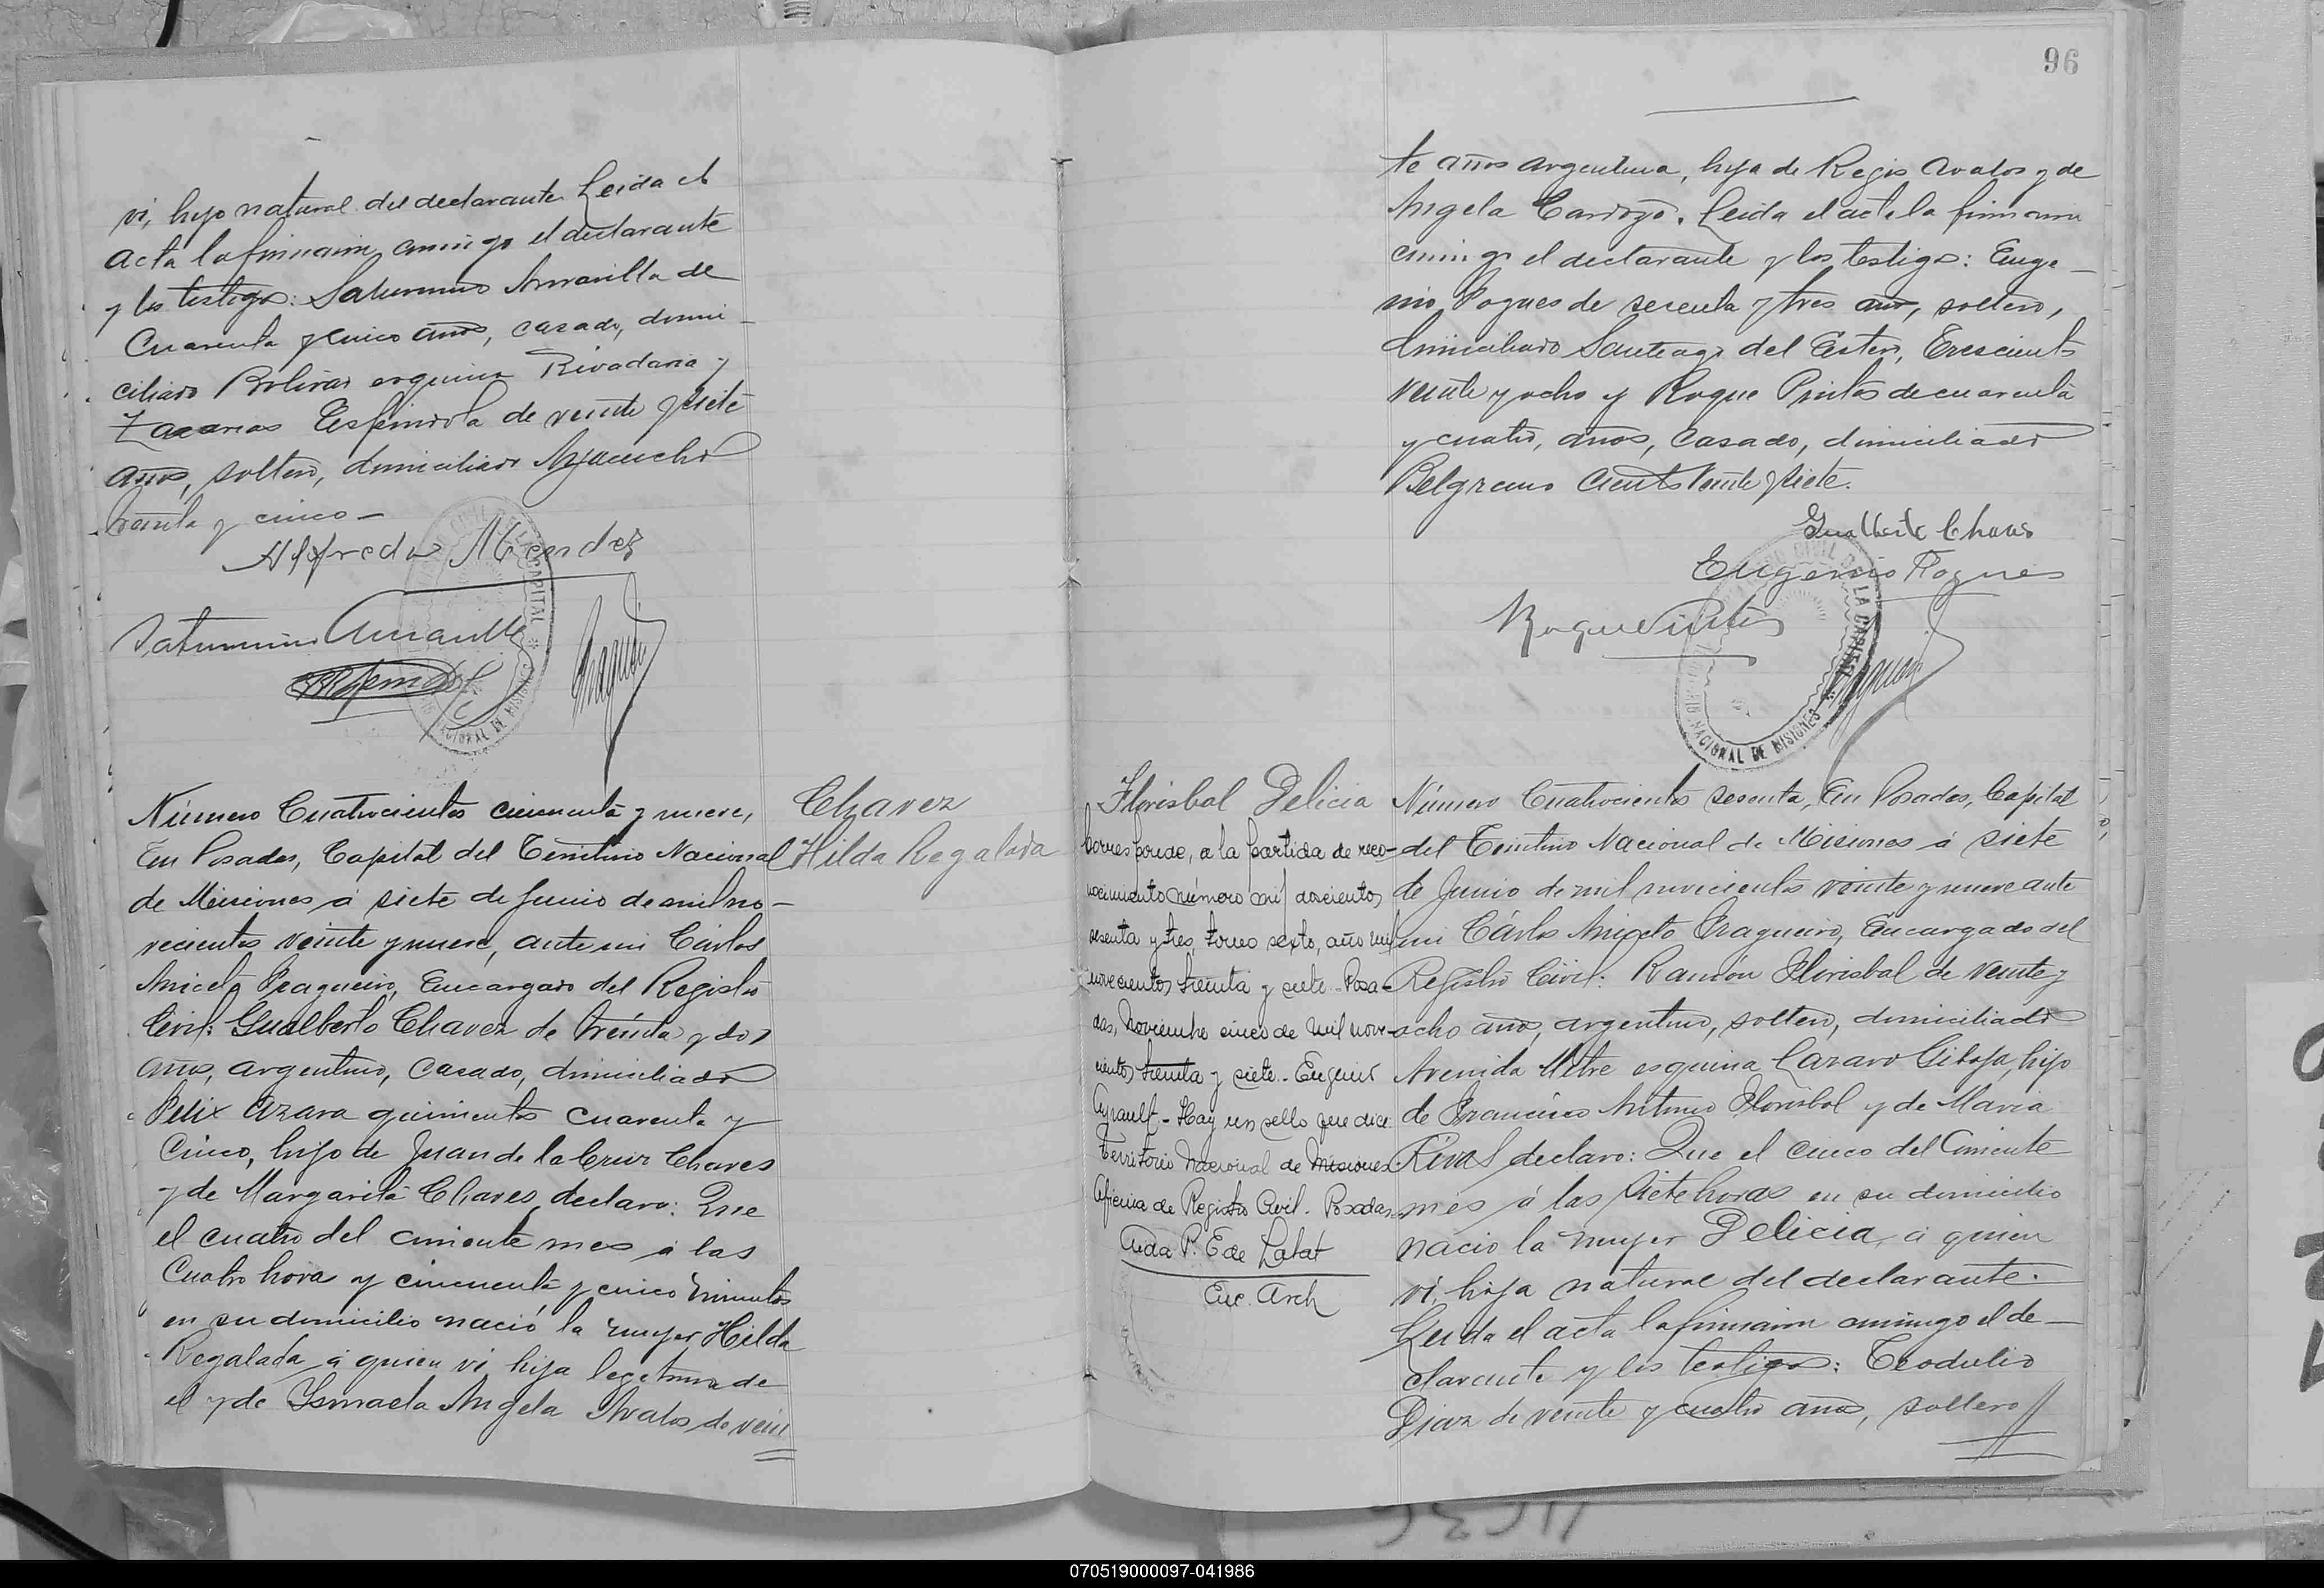 vi, hijo natural del declarante. Leida el
acta la firmaron conmigo el declarante
y los testigos: Saturnino Amarilla de
Cuarenta y cinco años, casado, domi-
ciliado Bolivar esquina Rivadavia y
Zacarias Espindola de veinte y siete
años, soltero, domiciliado Ayacucho
treinta y cinco-
Alfredo Mendez
Saturnino Amarilla
Número Cuatrocientos cincuenta y nueve,
En Posadas, Capital del Territorio Nacional
de Misiones á siete de Junio de mil no-
vecientos veinte y nueve, ante mi Cárlos
Aniceto Fragueiro, Encargado del Registro
Civil: Gualberto Chavez de treinta y dos
años, argentino, casado, domiciliado
Felix Azara quinientos cuarenta y
Cinco, hijo de Juan de la Cruz Chaves
y de Margarita Chaves, declaro: Que
el cuatro del corriente mes á las
Cuatro hora y cincuenta y cinco minutos
en su domicilio nació la mujer Hilda
Regalada á quien vi, hija legitima de
el y de Ismaela Angela Avalos de vein
Chavez
Hilda Regalada
96
te años argentina, hija de Regis Avalos y de
Angela Cardozo. Leida el acta la firmaron
conmigo el declarante y los testigos: Euge-
nio Pogues de sesenta y tres años, soltero,
domiciliado Santiago del Estero, Trescientos
veinte y ocho y Roque Pintos de cuarenta
y cuatro, años, casado, domiciliado
Belgrano ciento veinte y siete.
Gualberto Chaves
Eugenio Pogues
Roque Pintos
REGISTRO CIVIL DE LA CAPITAL
TERRITORIO NACIONAL DE MISIONES
Florisbal Delicia
Corresponde, a la partida de reco-
nocimiento número mil doscientos
sesenta y tres, tomo sexto, año mil
novecientos treinta y siete.- Posa-
das, Noviembre cinco de mil nove-
cientos treinta y siete.- Eugenio
Ayrault.- Hay un sello que dice:
Territorio Nacional de Misiones.
Oficina de Registro Civil. Posadas.
Aida P. E de Labat
Enc. Arch
Número Cuatrocientos sesenta, En Posadas, Capital
del Territorio Nacional de Misiones á siete
de Junio de mil novecientos veinte y nueve ante
mi Cárlos Aniceto Fragueiro, Encargado del
Registro Civil: Ramón Florisbal de veinte y
ocho años, argentino, soltero, domiciliado
Avenida Mitre esquina Lazaro Gibaja, hijo
de Francisco Antonio Florisbal y de Maria
Rivas declaro: Que el cinco del corriente
mes á las siete horas en su domicilio
nacio la mujer Delicia, á quien
vi, hija natural del declarante.
Leida el acta la firmaron conmigo el de-
clarante y los testigos: Teodulio
Diaz de veinte y cuatro años, soltero
070519000097-041986